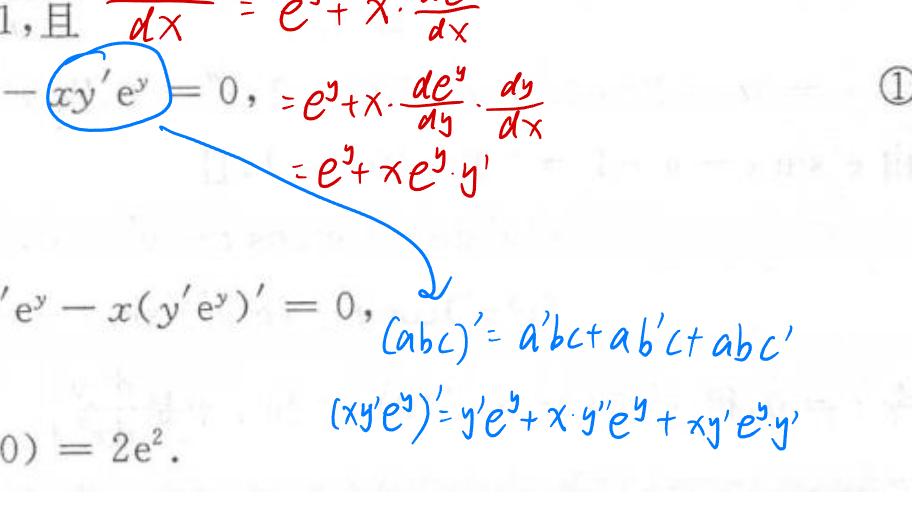 1,且 dx = e^y + x · dx
− xy′e^y = 0, = e^y + x · de^y/dy · dy/dx ①
= e^y + xe^y · y′
′e^y − x(y′e^y)′ = 0,
(abc)′ = a′bc + ab′c + abc′
(xy′e^y)′ = y′e^y + x · y″e^y + xy′e^y · y′
0) = 2e².